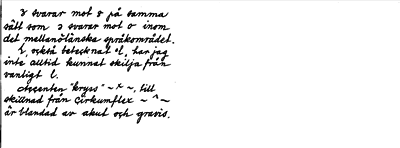 ɤ svarar mot ɤ på samma
sätt som ɔ svarar mot σ inom
det mellanöländska språkområdet.
l, också betecknat °l, har jag
inte alltid kunnat skilja från
vanligt l.
Accenten "kryss" ~ × ~, till
skillnad från cirkumflex ~ ^ ~
är blandad av akut och gravis.